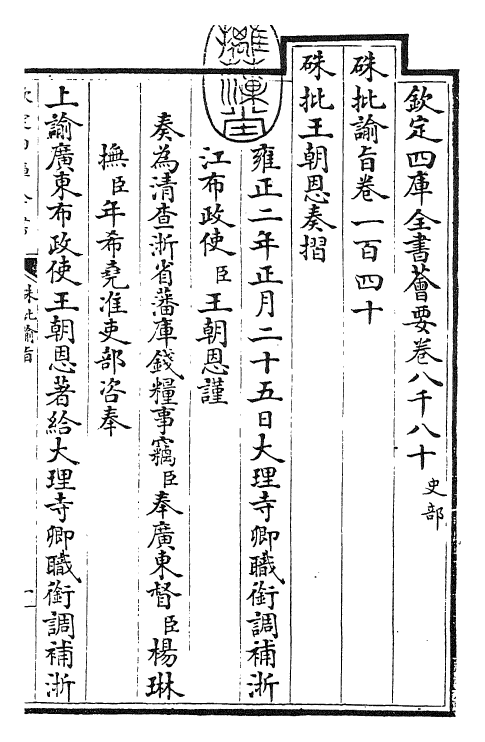 欽定四庫全書薈要卷八千八十 史部
硃批諭旨卷一百四十
硃批王朝恩奏摺
雍正二年正月二十五日大理寺卿職銜調補浙
江布政使臣王朝恩謹
奏為清查浙省藩庫錢糧事竊臣奉廣東督臣楊琳
撫臣年希堯准吏部咨奉
上諭廣東布政使王朝恩著給大理寺卿職銜調補浙
硃批諭旨
一